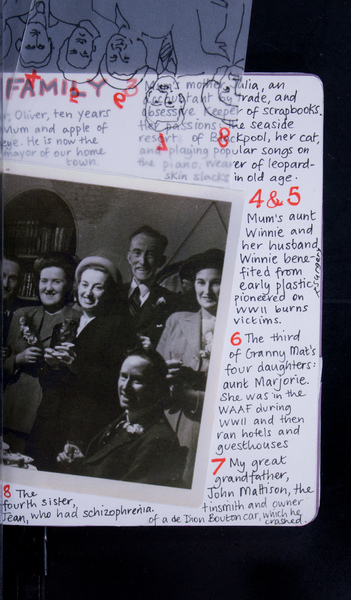 FAMILY
Oliver, ten years
Mum and apple of
eye. He is now the
mayor of our home
town.
3 Mum's mother, alia, an
accountant by trade, and
obsessive keeper of scrapbooks.
Her passions: the seaside
resort of Blackpool, her cat,
and playing popular songs on
the piano, wear er of leopard-
skin slacks in old age.
4 & 5
Mum's aunt
Winnie and
her husband.
Winnie bene-
fited from
early plastic
surgery
pioneered on
WWII burns
victims.
6 The third
of Granny Mat's
four daughters:
aunt Marjorie.
She was in the
WAAF during
WWII and then
ran hotels and
guesthouses
7 My great
grandfather,
John Mattison, the
tinsmith and owner
of a de Dion Bouton car, which he
crashed.
8 The
fourth sister,
Jean, who had schizophrenia.